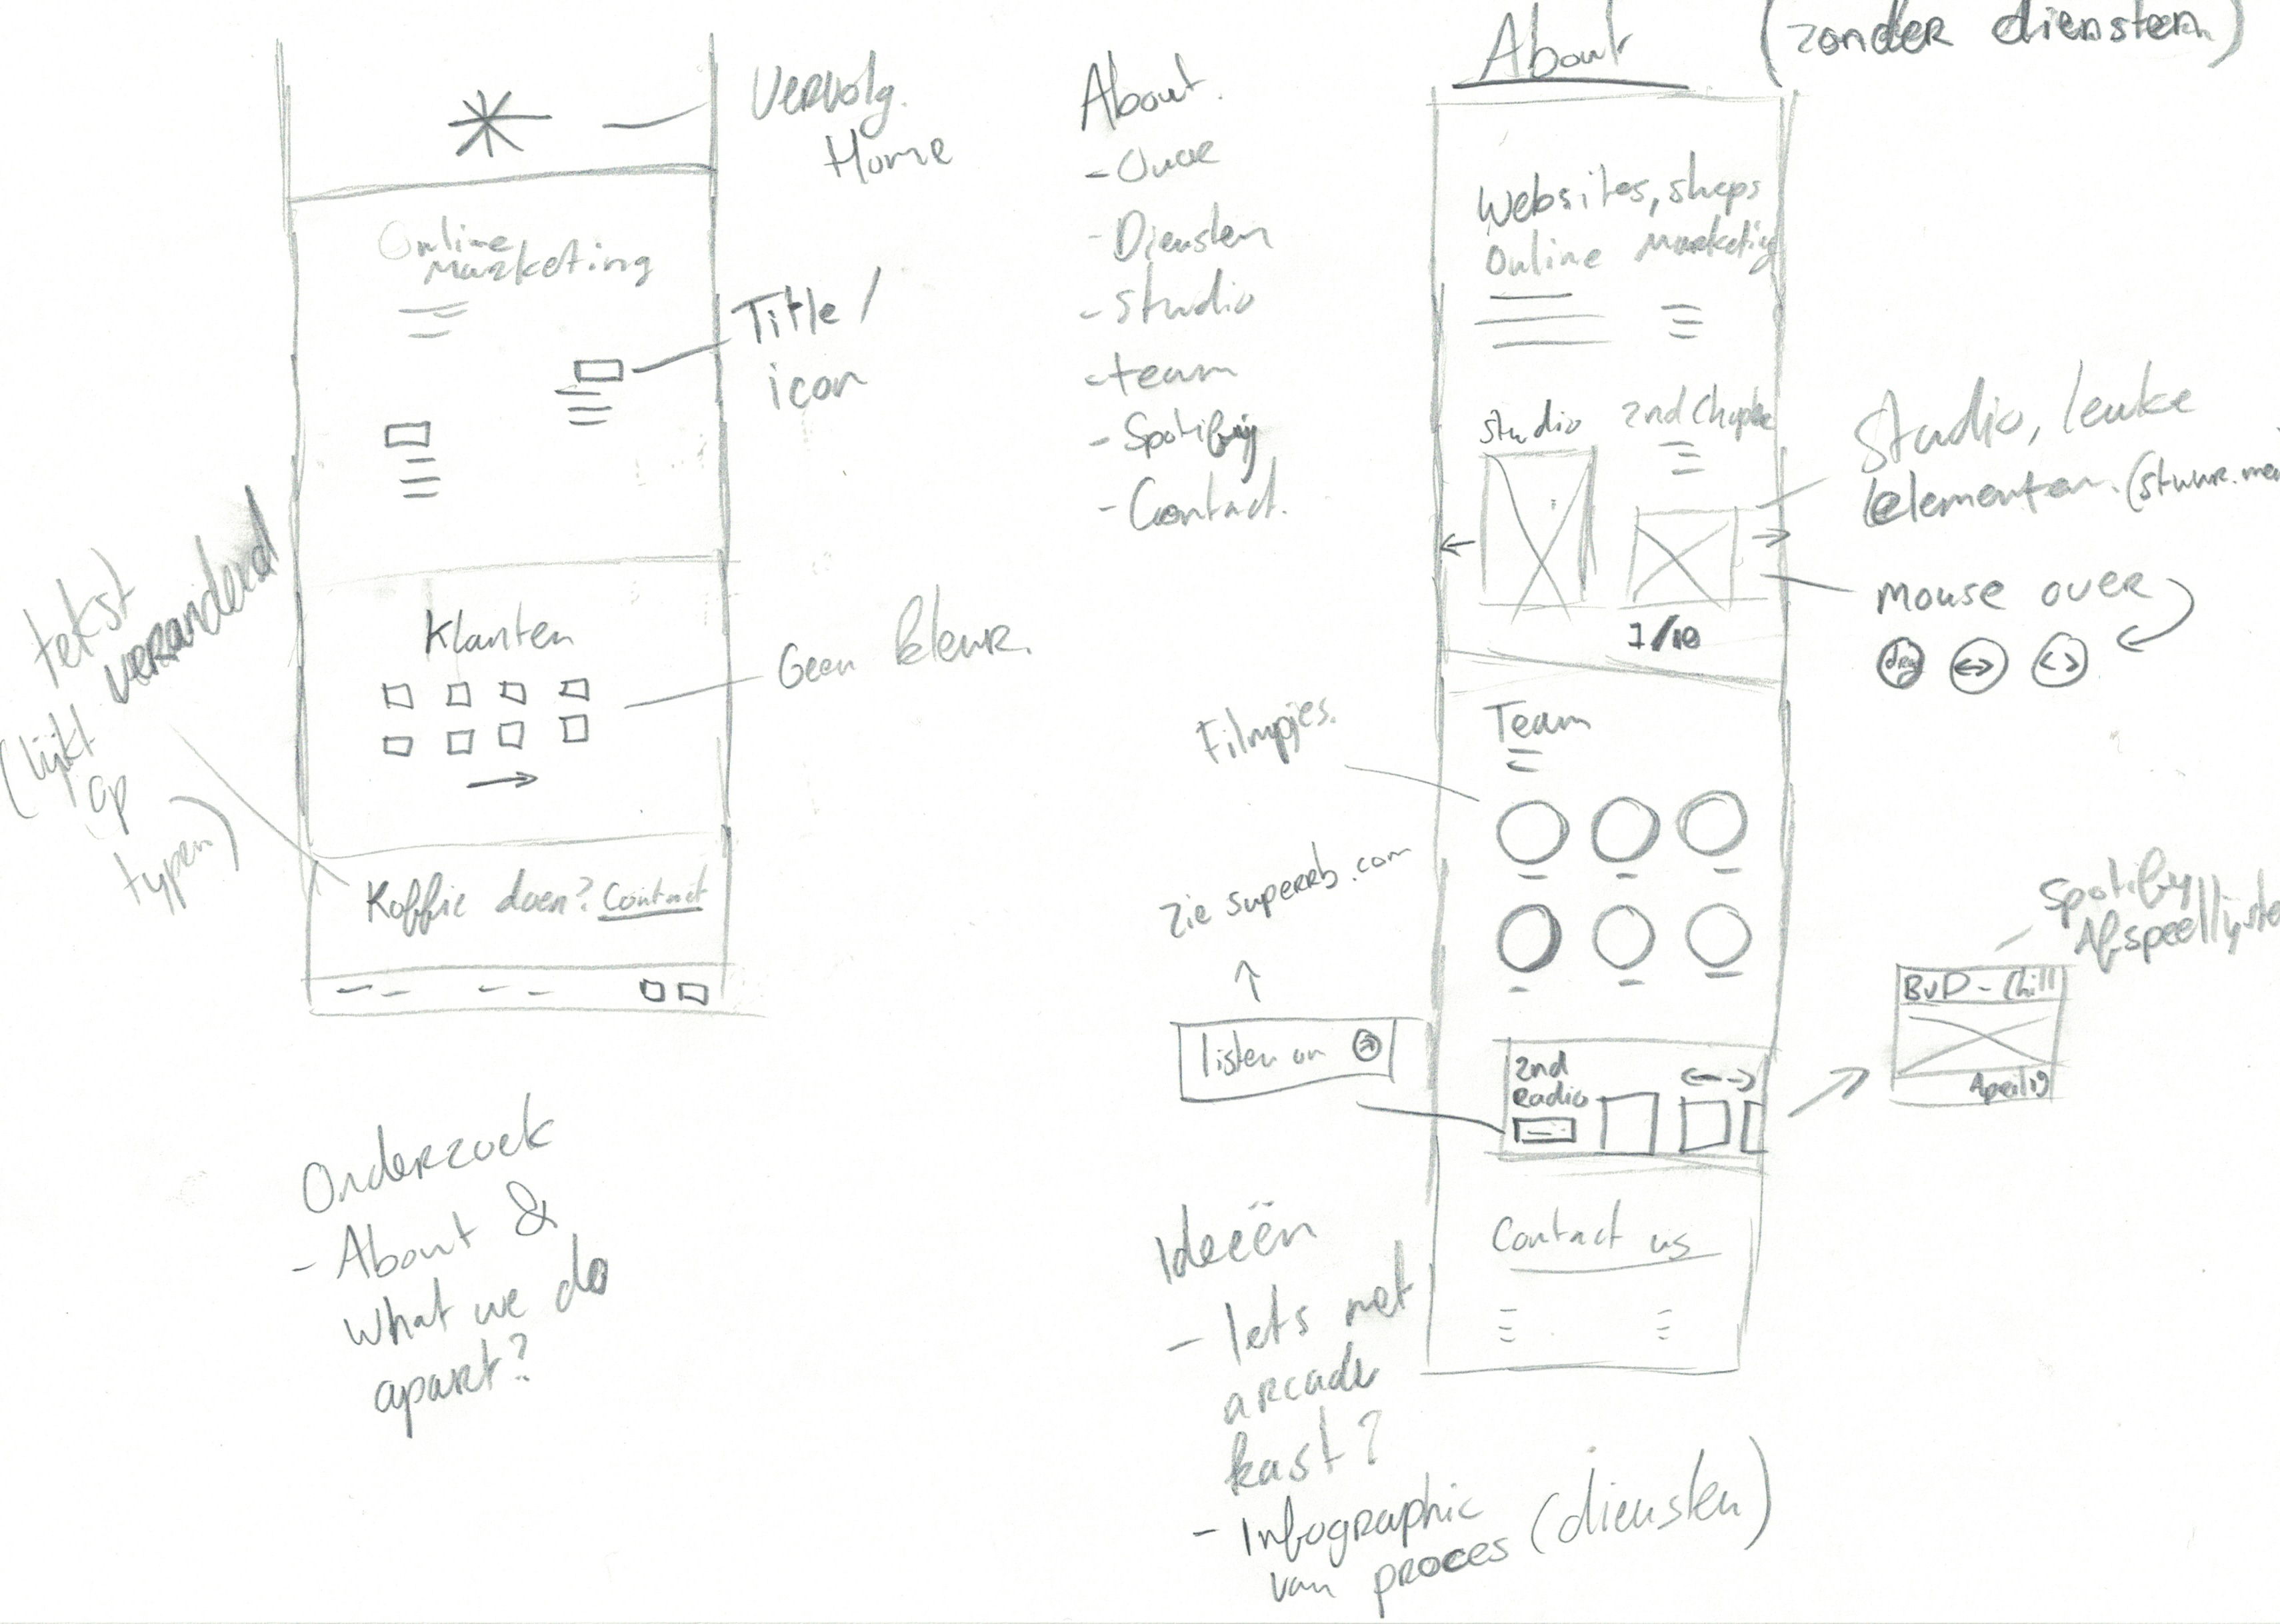 Vervolg.
Home
Online
Marketing
Title /
icon
Klanten
Geen kleur.
tekst
veranderd
(lijkt
op
typen)
Koffie doen? Contact
Onderzoek
- About &
What we do
apart?
About.
- Over
- Diensten
- studio
- team
- Spotify
- Contact.
About (zonder diensten)
Websites, shops
Online Marketing
studio
2nd Chapter
1/10
Studio, leuke
elementen. (stuur.me
Mouse over
drag
Filmpjes.
Team
zie superrb.com
listen on
2nd
Radio
Spotify
Afspeellijste
BVD - Chill
April 19
Contact us
Ideeën
- Iets met
arcade
kast?
- Infographic
van proces (diensten)